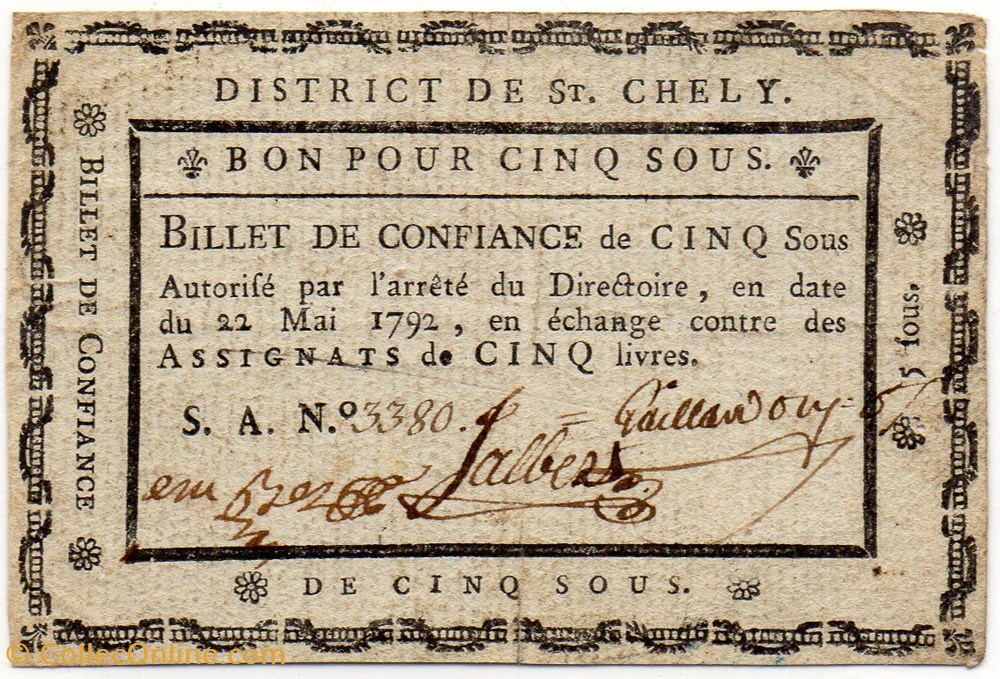 DISTRICT DE ST. CHELY.
BON POUR CINQ SOUS.
BILLET DE CONFIANCE de CINQ Sous
Autoriſé par l'arrêté du Directoire, en date
du 22 Mai 1792, en échange contre des
ASSIGNATS de CINQ livres.
S. A. N.º 3380.
Jalbert
BILLET DE CONFIANCE
5 ſous.
DE CINQ SOUS.
© CollecOnline.com